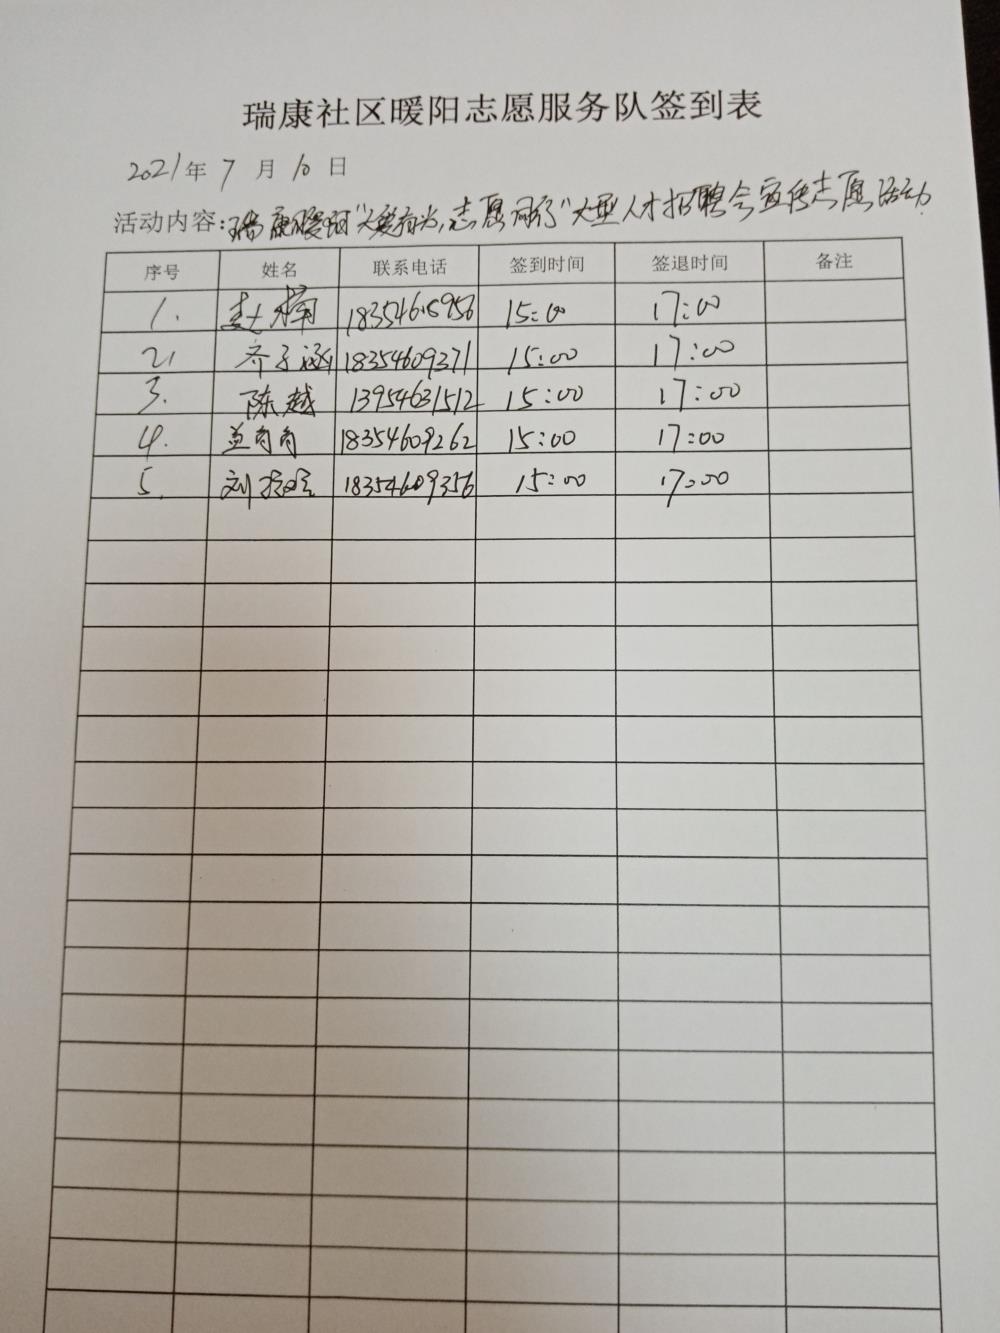 瑞康社区暖阳志愿服务队签到表
2021年 7 月 10 日
活动内容:瑞康暖阳"大爱有为,志愿同行"大型人才招聘会宣传志愿活动
序号 姓名 联系电话 签到时间 签退时间 备注
1. 15:00 17:00
2. 齐子涵 18354609371 15:00 17:00
3. 陈越 13954631512 15:00 17:00
4. 18354609262 15:00 17:00
5. 刘 18354609356 15:00 17:00